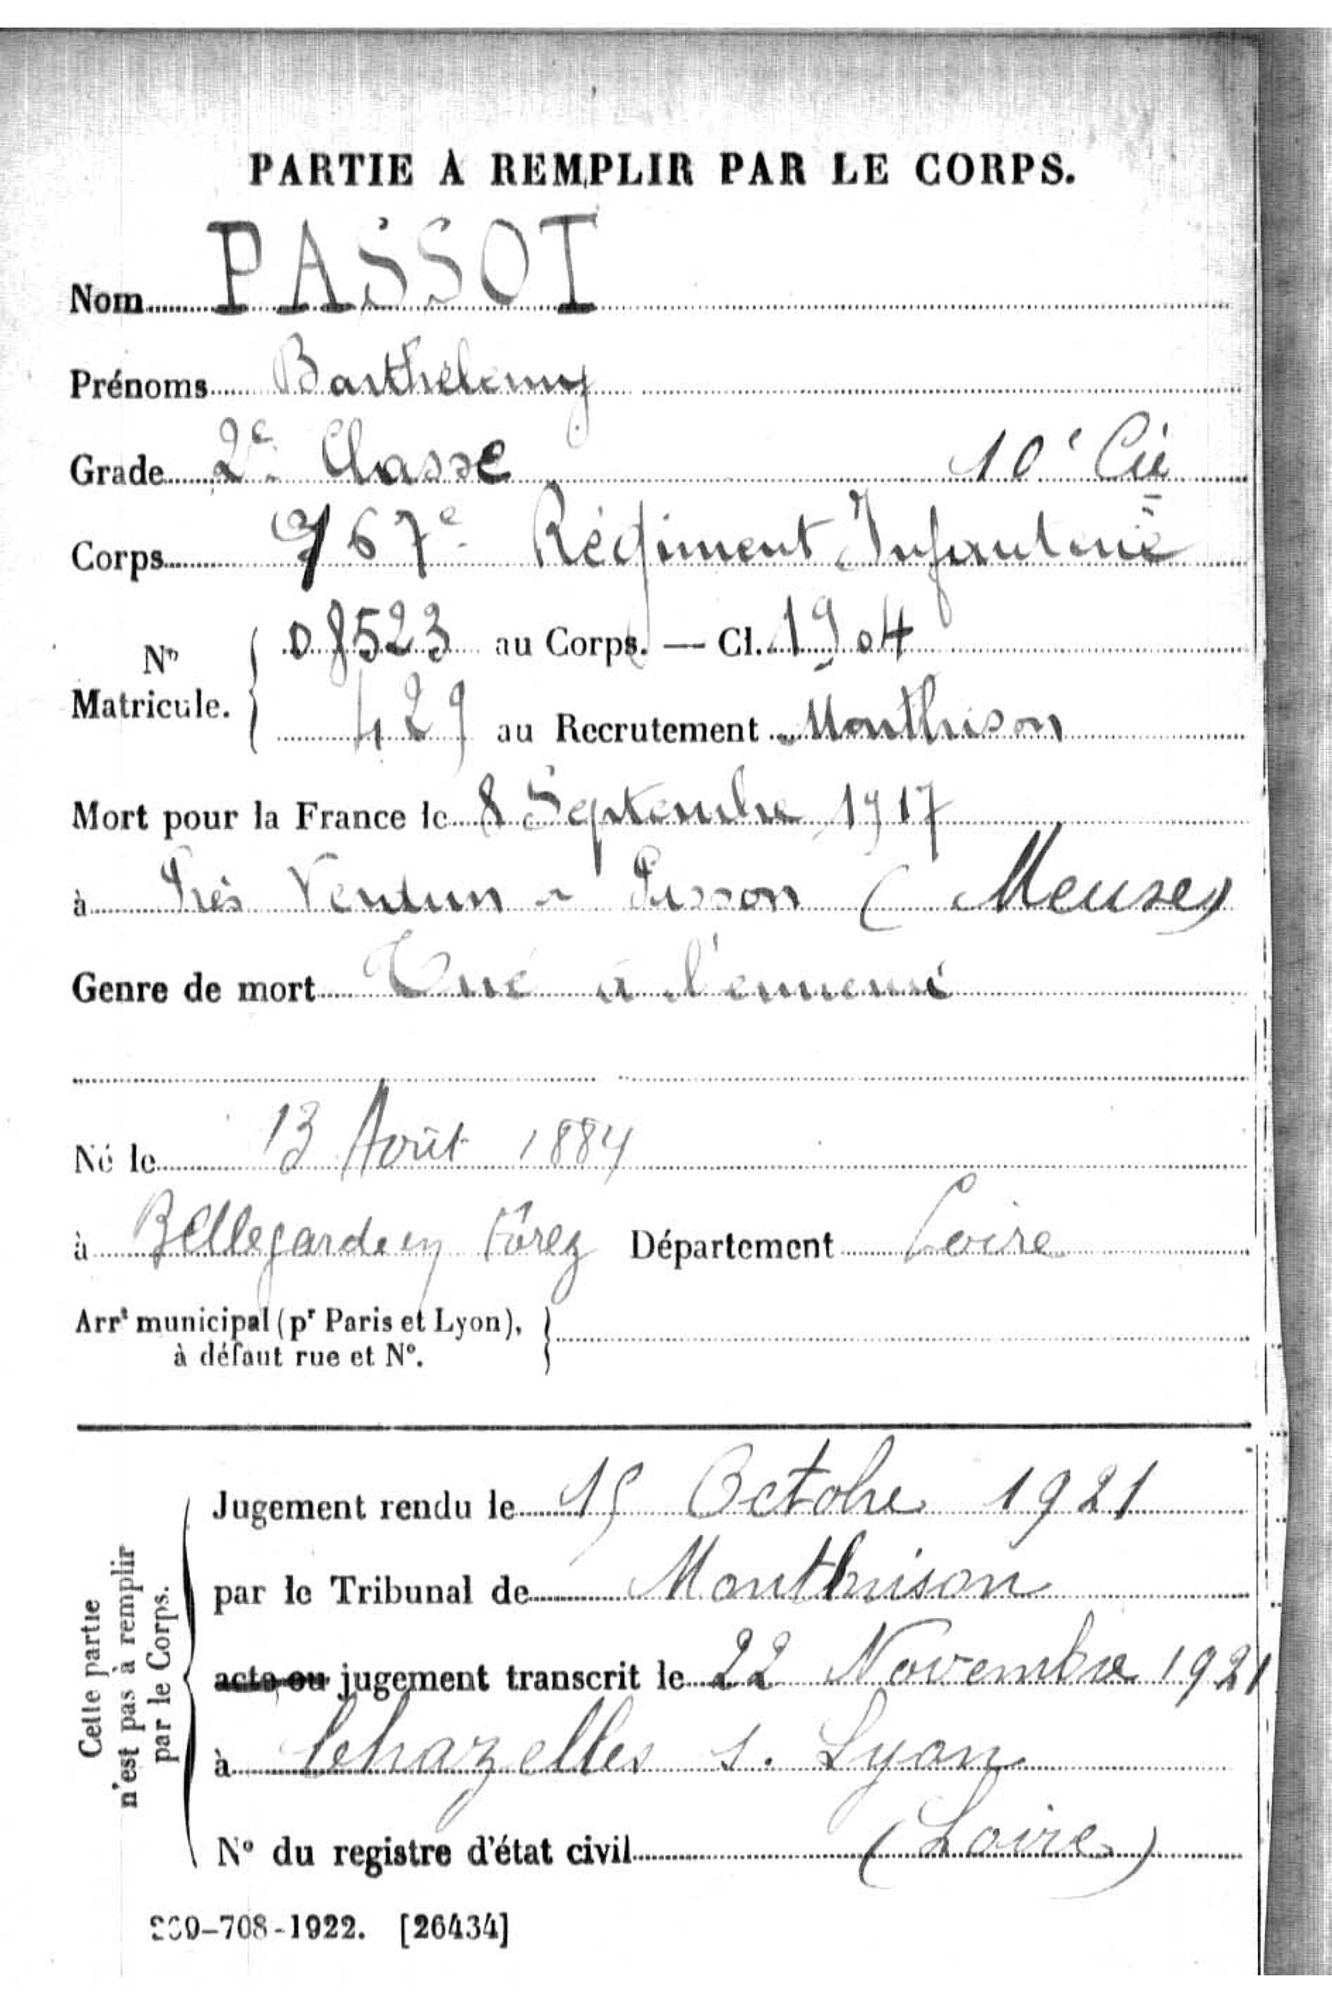 PARTIE À REMPLIR PAR LE CORPS.
Nom PASSOT
Prénoms Barthélemy
Grade 2e Classe 10e Cie
Corps 167e Régiment Infanterie
No Matricule. 08523 au Corps. — Cl. 1904
429 au Recrutement Montbrison
Mort pour la France le 8 Septembre 1917
à Près Verdun (Meuse)
Genre de mort Tué à l'ennemi
Né le 13 Août 1884
à Bellegarde en Forez Département Loire
Arrt municipal (pr Paris et Lyon),
à défaut rue et No.
Cette partie
n'est pas à remplir
par le Corps.
Jugement rendu le 15 Octobre 1921
par le Tribunal de Montbrison
acte ou jugement transcrit le 22 Novembre 1921
à Chazelles s. Lyon
No du registre d'état civil (Loire)
-708-1922. [26434]